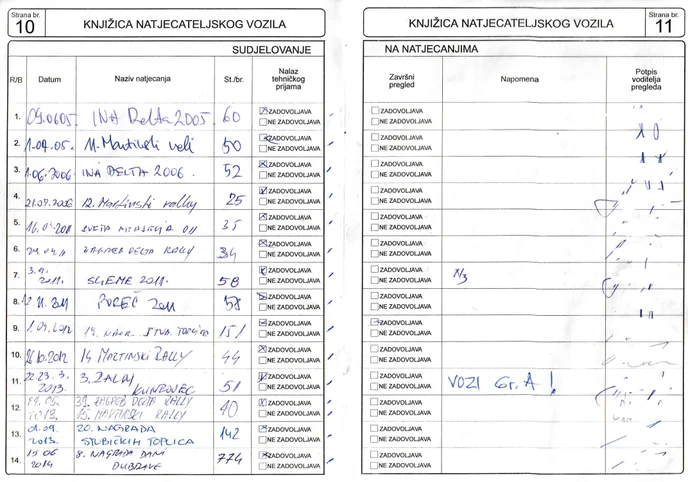 Strana br.
10
KNJIŽICA NATJECATELJSKOG VOZILA
SUDJELOVANJE
R/B Datum Naziv natjecanja St./br. Nalaz tehničkog prijama
1. 09.0605. INA Delta 2005. 60 ZADOVOLJAVA
NE ZADOVOLJAVA
2. 11. Martinski 50 ZADOVOLJAVA
NE ZADOVOLJAVA
3. 1.06.2006 INA DELTA 2006. 52 ZADOVOLJAVA
NE ZADOVOLJAVA
4. 12. Martinski rally 25 ZADOVOLJAVA
NE ZADOVOLJAVA
5. 35 ZADOVOLJAVA
NE ZADOVOLJAVA
6. ZAGREB DELTA RALLY 34 ZADOVOLJAVA
NE ZADOVOLJAVA
7. 3.9. 2011. SLJEME 2011. 58 ZADOVOLJAVA
NE ZADOVOLJAVA
8. POREČ 2011 58 ZADOVOLJAVA
NE ZADOVOLJAVA
9. 19. 151 ZADOVOLJAVA
NE ZADOVOLJAVA
10. 14 MARTINSKI RALLY 44 ZADOVOLJAVA
NE ZADOVOLJAVA
11. 2013. 3. KUMROVEC 51 ZADOVOLJAVA
NE ZADOVOLJAVA
12. 39. ZAGREB DELTA RALLY 40 ZADOVOLJAVA
2013. 15. MARTINSKI RALLY NE ZADOVOLJAVA
13. 01.09. 20. NAGRADA 142 ZADOVOLJAVA
2013. STUBIČKIH TOPLICA NE ZADOVOLJAVA
14. 15 06 8. NAGRADA DANI 774 ZADOVOLJAVA
2014 DUBRAVE NE ZADOVOLJAVA
KNJIŽICA NATJECATELJSKOG VOZILA
Strana br.
11
NA NATJECANJIMA
Završni pregled Napomena Potpis voditelja pregleda
ZADOVOLJAVA
NE ZADOVOLJAVA
ZADOVOLJAVA
NE ZADOVOLJAVA
ZADOVOLJAVA
NE ZADOVOLJAVA
ZADOVOLJAVA
NE ZADOVOLJAVA
ZADOVOLJAVA
NE ZADOVOLJAVA
ZADOVOLJAVA
NE ZADOVOLJAVA
ZADOVOLJAVA
NE ZADOVOLJAVA
ZADOVOLJAVA
NE ZADOVOLJAVA
ZADOVOLJAVA
NE ZADOVOLJAVA
ZADOVOLJAVA
NE ZADOVOLJAVA
ZADOVOLJAVA VOZI Gr. A !
NE ZADOVOLJAVA
ZADOVOLJAVA
NE ZADOVOLJAVA
ZADOVOLJAVA
NE ZADOVOLJAVA
ZADOVOLJAVA
NE ZADOVOLJAVA